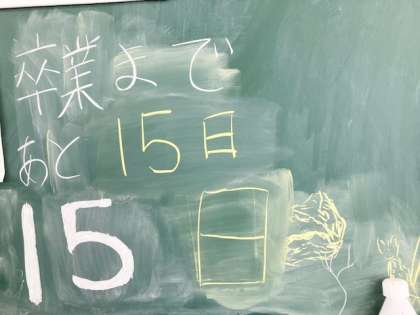 卒業まで
あと 15日
15日